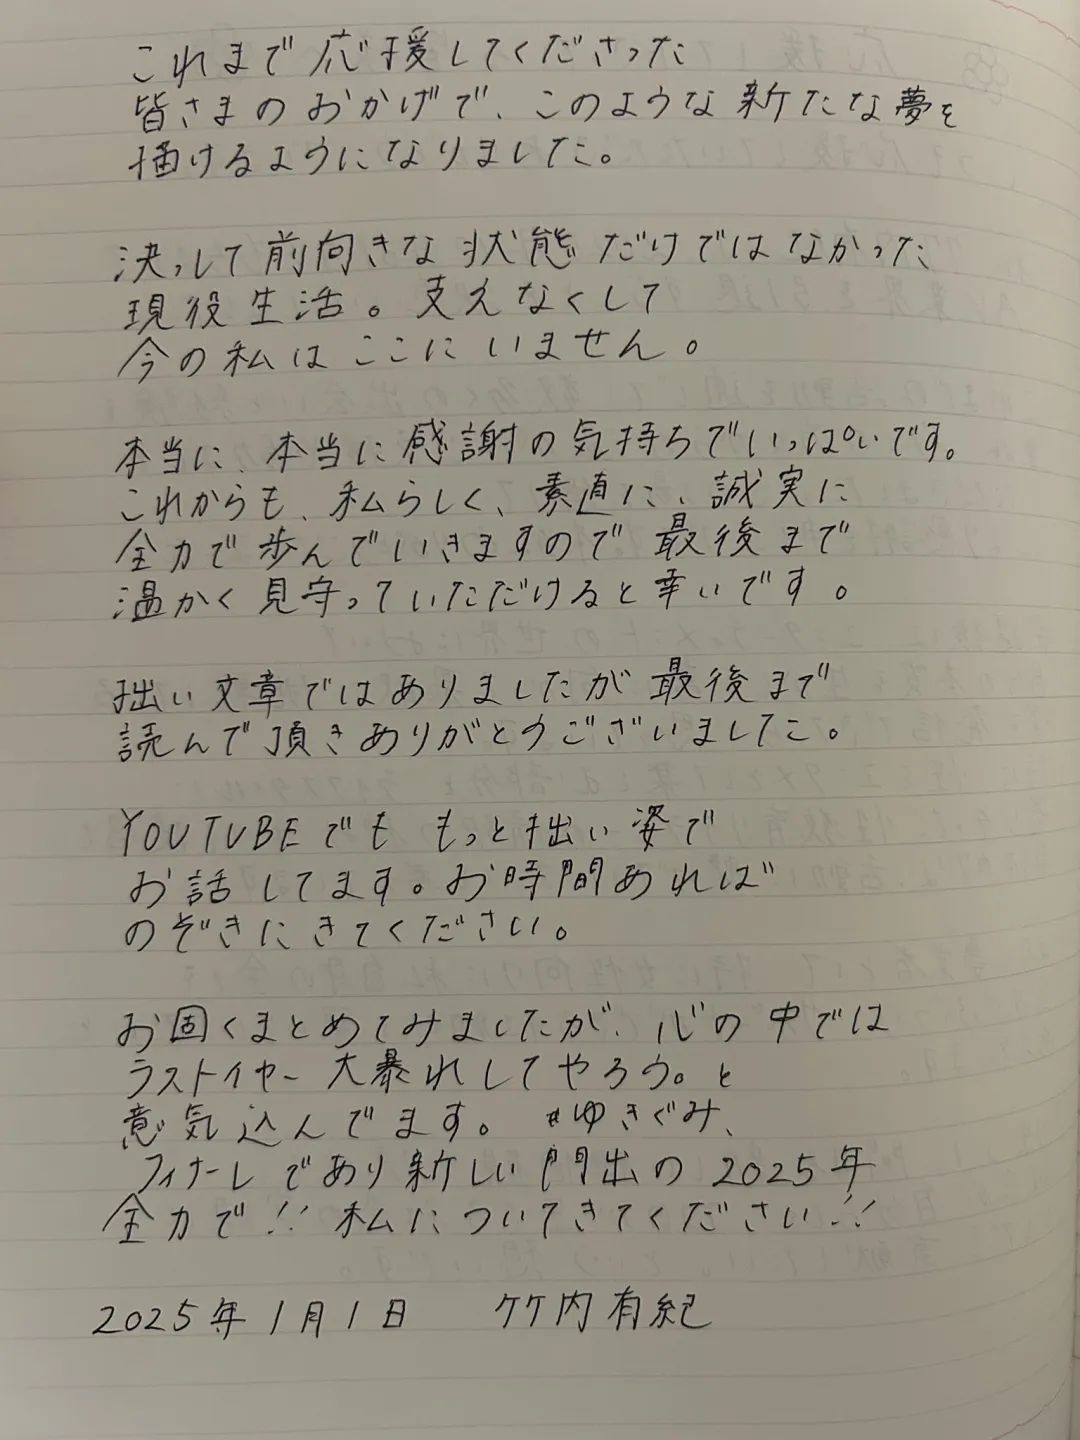 これまで応援してくださった
皆さまのおかげで、このような新たな夢を
描けるようになりました。
決して前向きな状態だけではなかった
現役生活。支えなくして
今の私はここにいません。
本当に、本当に感謝の気持ちでいっぱいです。
これからも、私らしく、素直に、誠実に
全力で歩んでいきますので最後まで
温かく見守っていただけると幸いです。
拙い文章ではありましたが最後まで
読んで頂きありがとうございました。
YOUTUBEでももっと拙い姿で
お話してます。お時間あれば
のぞきにきてください。
お固くまとめてみましたが、心の中では
ラストイヤー大暴れしてやろう。と
意気込んでます。#ゆきぐみ、
フィナーレであり新しい門出の2025年
全力で!! 私についてきてください!!
2025年1月1日 竹内有紀